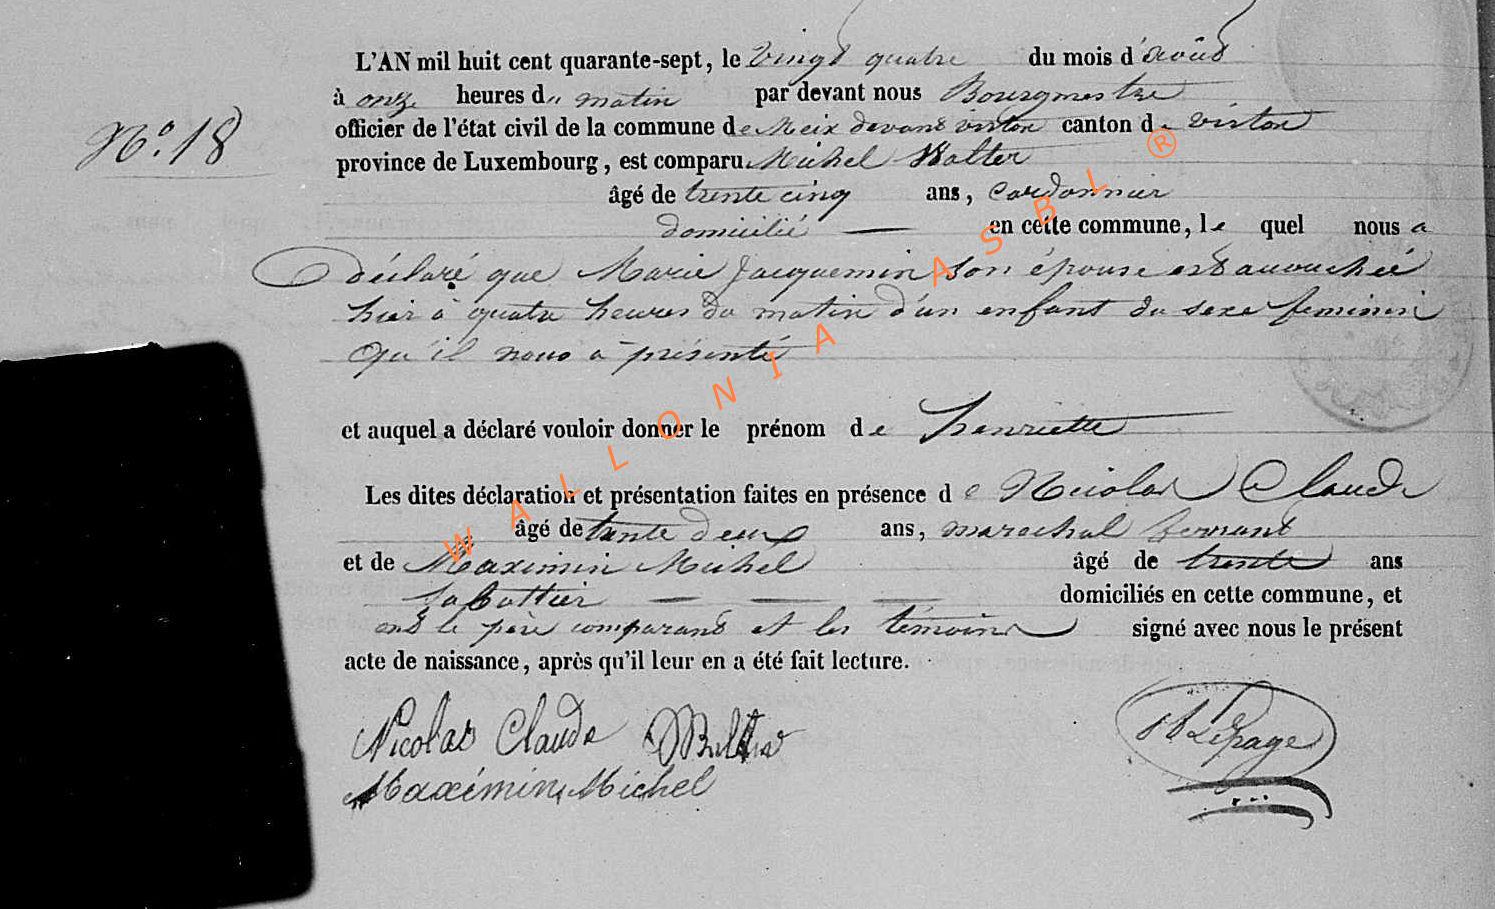 L'AN mil huit cent quarante-sept, le Vingt quatre du mois d'août
à onze heures du matin par devant nous Bourgmestre
officier de l'état civil de la commune de Meix devant virton canton de virton
N.º 18
province de Luxembourg, est comparu Michel Walter
âgé de trente cinq ans, Cordonnier
domicilié — en cette commune, le quel nous a
déclaré que Marie Jacquemin Son épouse est accouchée
hier à quatre heures du matin d'un enfant du sexe feminin
qu'il nous a présenté
et auquel a déclaré vouloir donner le prénom de henriette
Les dites déclaration et présentation faites en présence de Nicolas Claude
âgé de trente deux ans, marechal ferrant
et de Maximin Michel âgé de trente ans
Sabottier — — — domiciliés en cette commune, et
ont le père comparant et les témoins signé avec nous le présent
acte de naissance, après qu'il leur en a été fait lecture.
Nicolas Claude
Maximin Michel
Lepage
WALLONIA ASBL ®